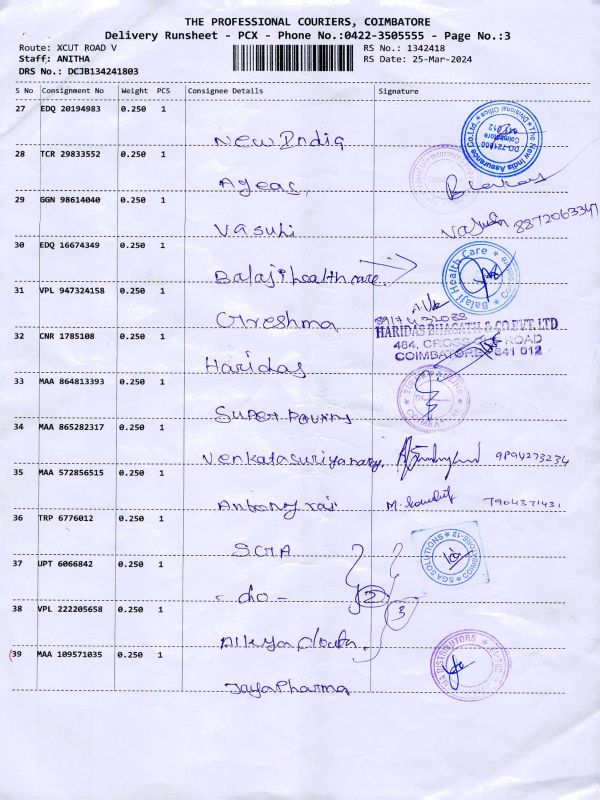 THE PROFESSIONAL COURIERS, COIMBATORE
Delivery Runsheet - PCX - Phone No.:0422-3505555 - Page No.:3
Route: XCUT ROAD V RS No.: 1342418
Staff: ANITHA RS Date: 25-Mar-2024
DRS No.: DCJB134241803
S No Consignment No Weight PCS Consignee Details Signature
27 EDQ 20194983 0.250 1
New India
The New India Assurance Co.Ltd. * Divisional Office * DO-721600 Coimbatore
28 TCR 29833552 0.250 1
Ageas
29 GGN 98614040 0.250 1
Vasuki 8872063347
30 EDQ 16674349 0.250 1
Balaji health care.
Balaji Health Care
31 VPL 947324158 0.250 1
Greshma
32 CNR 1785108 0.250 1
HARIDAS BHAGATH & CO.PVT. LTD
484, CROSS ROAD
COIMBATORE - 641 012
Haridas
33 MAA 864813393 0.250 1
Super
34 MAA 865282317 0.250 1
Venkatasuriyanaray. 9894273234
35 MAA 572856515 0.250 1
Antony raj 7904371431
36 TRP 6776012 0.250 1
SGA
* SGA SOLUTIONS * COIMBATORE-12
37 UPT 6066842 0.250 1
- do - 2
3
38 VPL 222205658 0.250 1
39 MAA 109571035 0.250 1
DISTRIBUTORS
Jaya Pharma